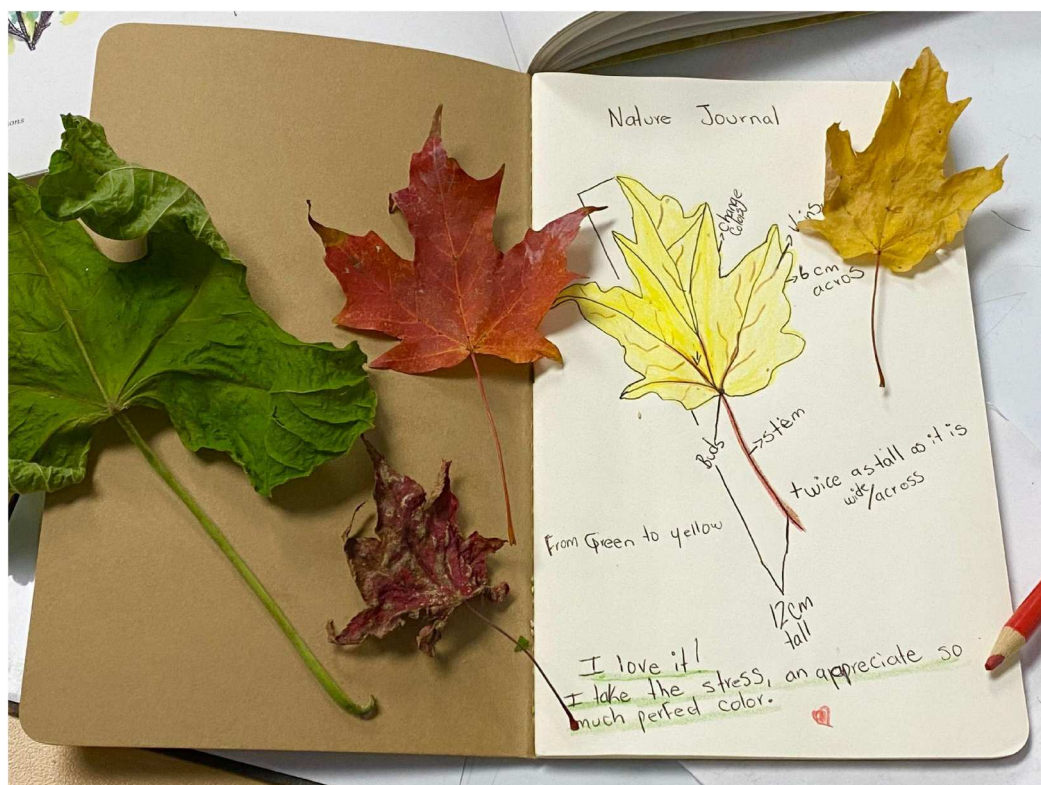 ons
Nature Journal
Change
Color
6 cm
acros
Buds
stem
twice as tall as it is
wide/across
From Green to yellow
12cm
tall
I love it!
I take the stress, an appreciate so
much perfect color.